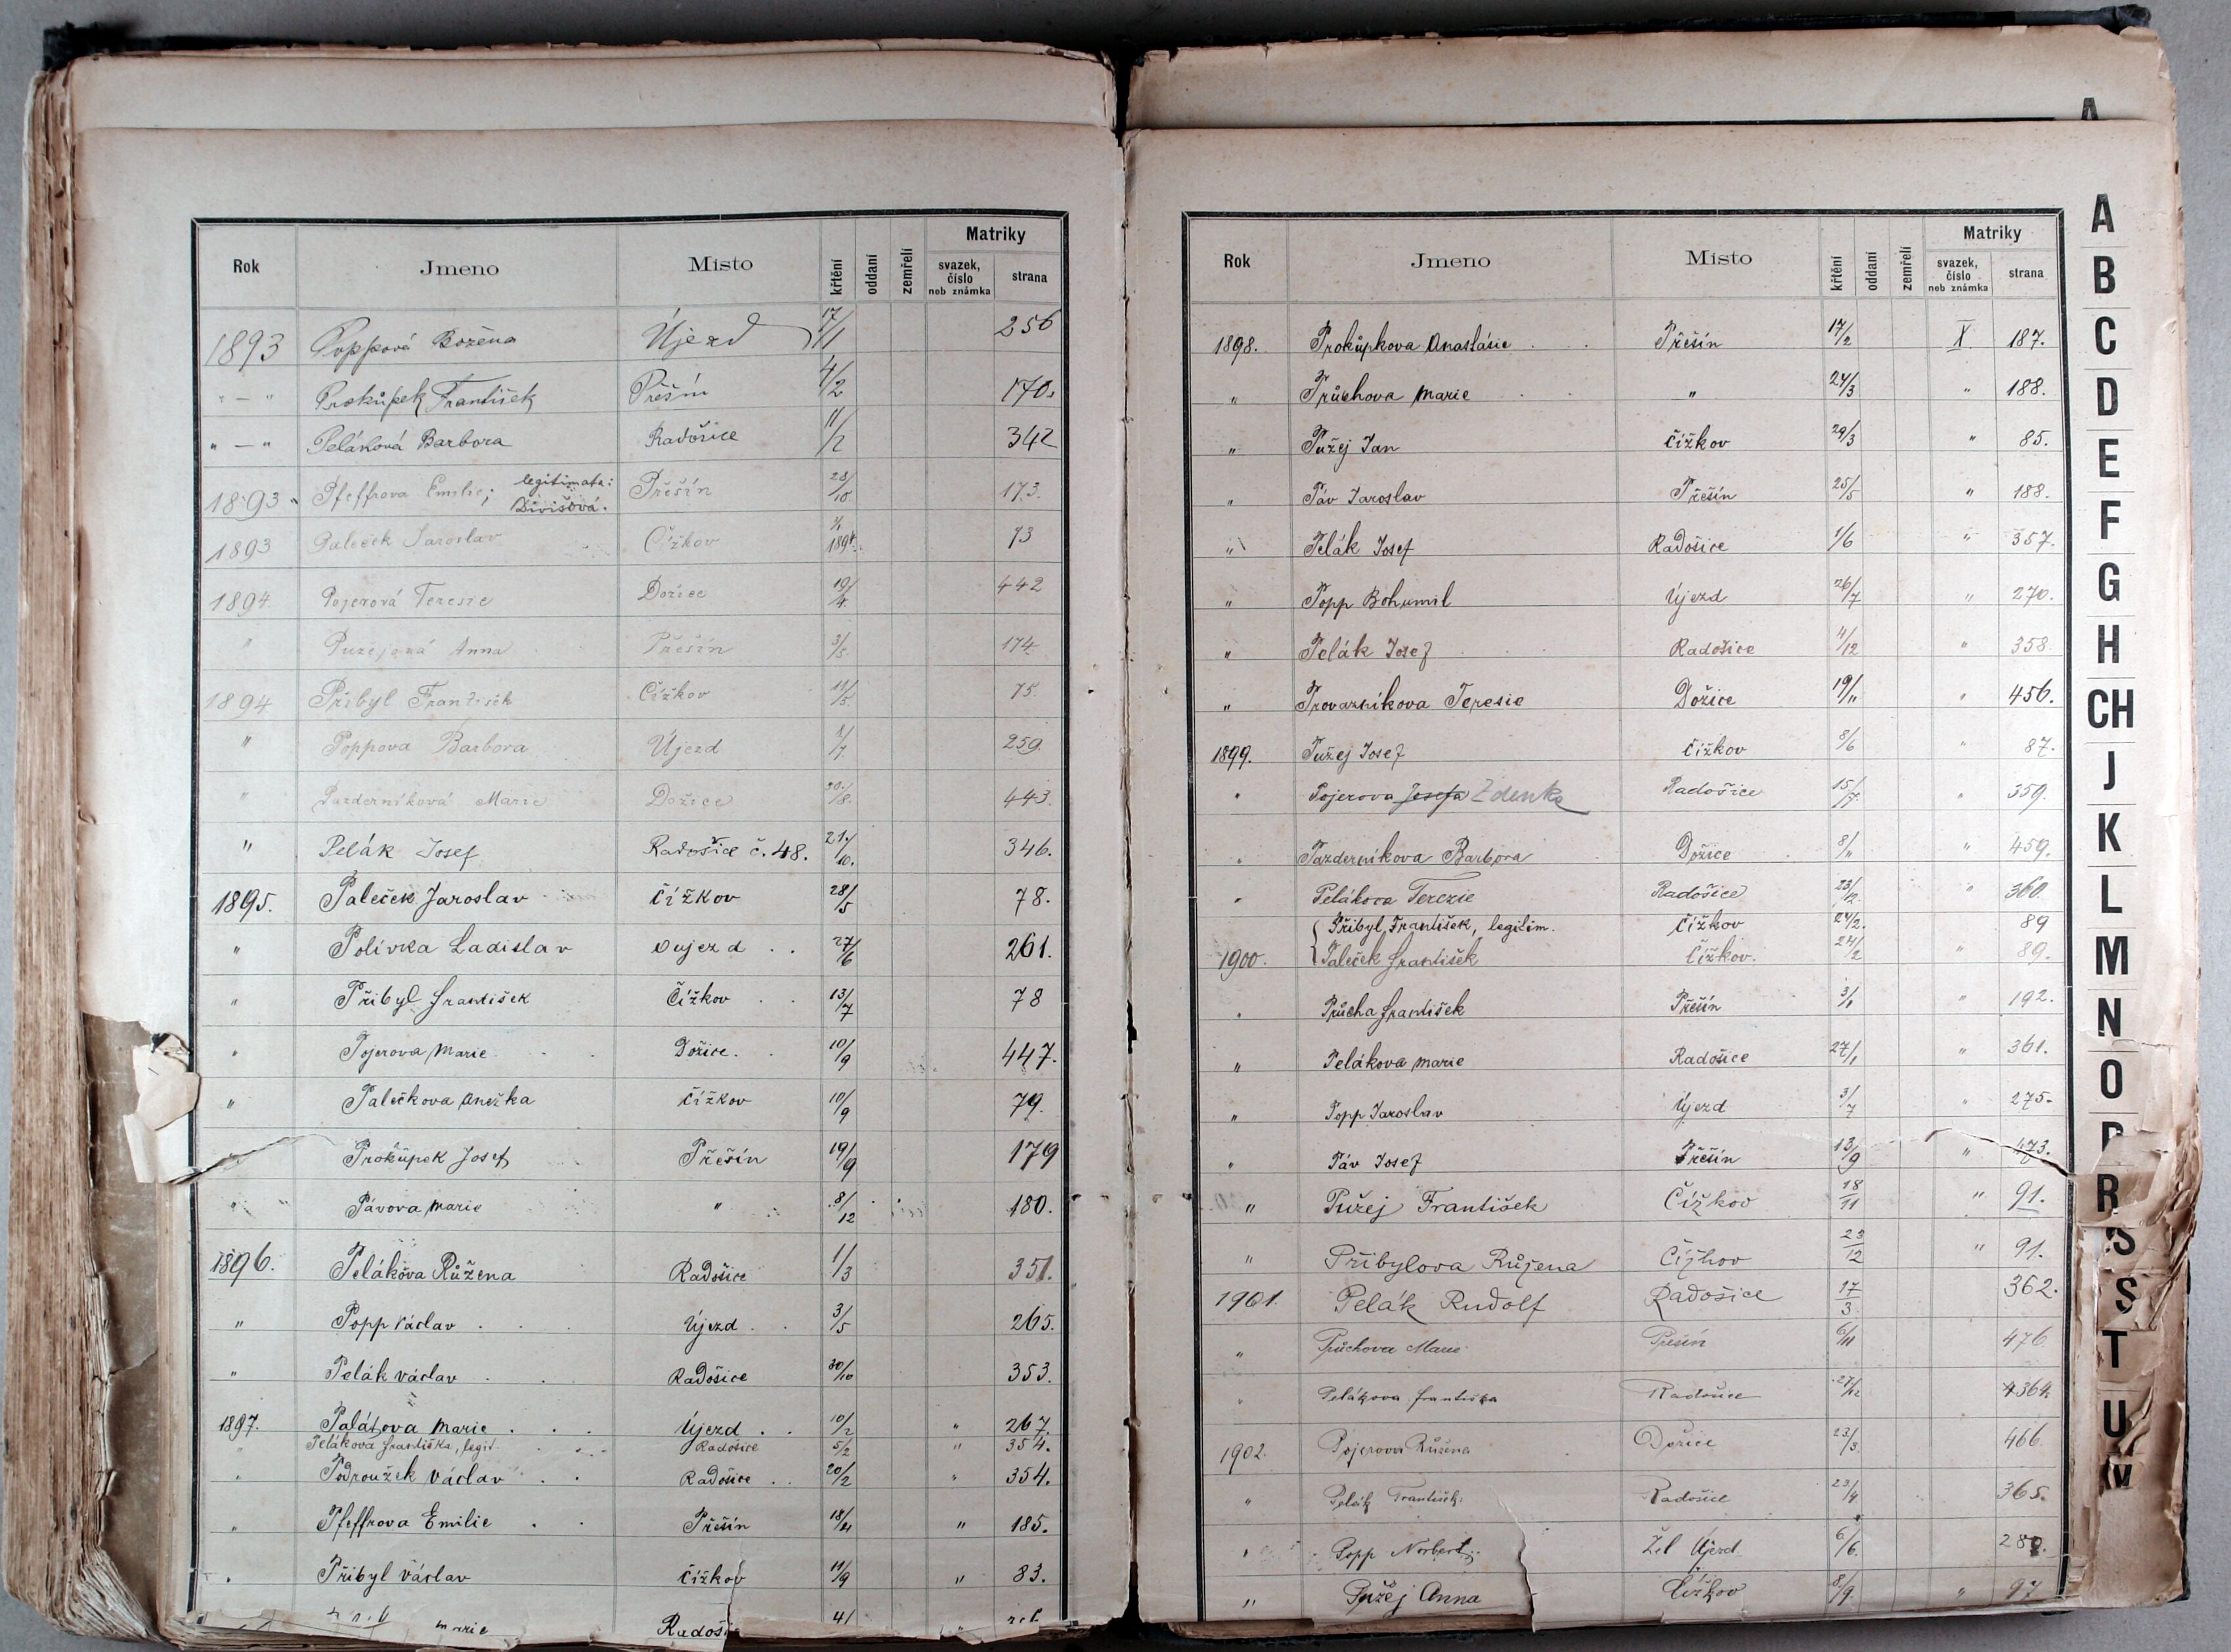 Rok Jmeno Misto křtění oddaní zemřelí Matriky svazek, číslo neb známka strana
1893 Poppová Božena Újezd 17/1 256
" — " Prokůpek František Přešín 4/2 170.
" — " Peláková Barbora Radošice 11/2 342
1893 Pfeffrova Emilie; legitimata: Divišová. Přešín 28/10 173.
1893 Paleček Jaroslav Čížkov 1/1 1894. 73
1894. Pojerová Teresie Dožice 19/4. 442
" Pužejová Anna Přešín 3/5. 174
1894 Přibyl František Čížkov 11/5. 75.
" Poppova Barbora Újezd 1/7. 259.
" Pazderníková Marie Dožice 20./8. 443.
" Pelák Josef Radošice č. 48. 21./10. 346.
1895. Paleček Jaroslav Čížkov 28/5 78.
" Polívka Ladislav Oujezd . . 27/6 261.
" Přibyl František Čížkov . . 13/7 78
" Pojerova Marie . . Dožice. . 10/9 447.
" Palečkova Anežka Čížkov 10/9 79.
" Prokůpek Josef Přešín 19/9 179
" Pávova Marie " 8/12 180.
1896. Pelákova Růžena Radošice 1/3 351.
" Popp Václav . . . Újezd . . 3/5 265.
" Pelák Václav . . Radošice 30/10 353.
1897. Palátova Marie . . . Újezd . . 10/2 " 267.
" Pelákova Františka, legit. Radošice 5/2 " 354.
" Podroužek Václav . . Radošice . . 20/2 " 354.
" Pfeffrova Emilie . . Přešín 18/ " 185.
" Přibyl Václav Čížkov 11/9 " 83.
Marie Radoši 4/
Rok Jmeno Misto křtění oddaní zemřelí Matriky svazek, číslo neb známka strana
1898. Prokůpkova Anastásie . . Přešín 17/2 X 187.
" Průchova Marie . . " 24/3 " 188.
" Pužej Jan Čížkov 29/3 " 85.
" Páv Jaroslav Přešín 25/5 " 188.
" Pelák Josef Radošice 1/6 " 357.
" Popp Bohumil Újezd 26/7 " 270.
" Pelák Josef Radošice 4/12 " 358.
" Provazníkova Teresie Dožice 19/11 " 456.
1899. Pužej Josef Čížkov 8/6 " 87.
" Pojerova Josefa Zdenka Radošice 15/7. " 359.
" Pazderníkova Barbora Dožice 8/11 " 459.
" Pelákova Terezie Radošice 23/12. " 360.
Přibyl František, legitim. Čížkov 24/2. 89
1900. Paleček František Čížkov. 24/2 " 89.
" Průcha František Přešín 3/1 " 192.
" Pelákova Marie Radošice 27/1 " 361.
" Popp Jaroslav Újezd 3/7 " 275.
" Páv Josef Přešín 13/9 " 473.
" Pužej František Čížkov 18/11 " 91.
" Přibylova Růžena Čížkov 23/12 " 91.
1901. Pelák Rudolf Radošice 17/3. 362.
" Průchova Marie Přešín 6/11 476
" Pelákova Františka Radošice 27/12 364.
1902. Pojerova Růžena Dožice 23/3. 466.
" Pelák František Radošice 23/4 365.
" Popp Norbert Žel Újezd 6/6.
" Pužej Anna Čížkov 8./9. " 97
A
A
B
C
D
E
F
G
H
CH
J
K
L
M
N
O
P
R
S
Š
T
U